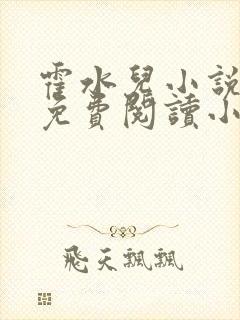 霍水兒小說
免費閱讀小
飛天飄飄